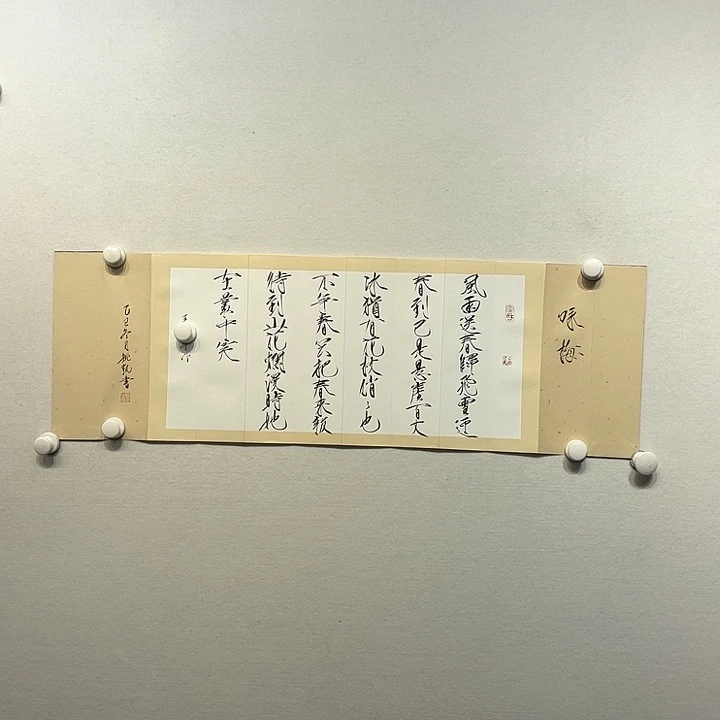 咏梅
風雨送春歸飛雪迎
春到已是懸崖百丈
冰猶有花枝俏々也
不爭春只把春來報
待到山花爛漫時她
在叢中笑
乙巳冬月
書